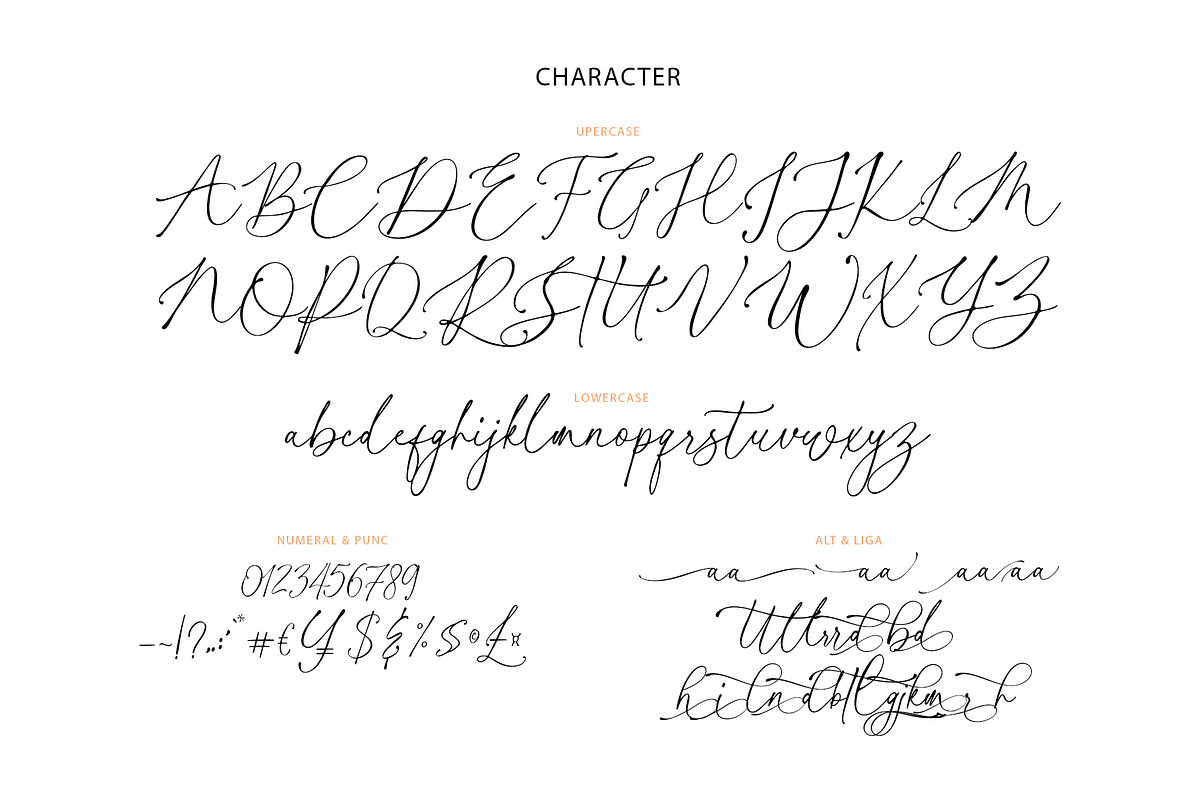 CHARACTER
UPERCASE
ABCDEFGHIJKLM
NOPQRSTUVWXYZ
LOWERCASE
abcdefghijklmnopqrstuvwxyz
NUMERAL & PUNC
0123456789
ALT & LIGA
aa aa aa aa